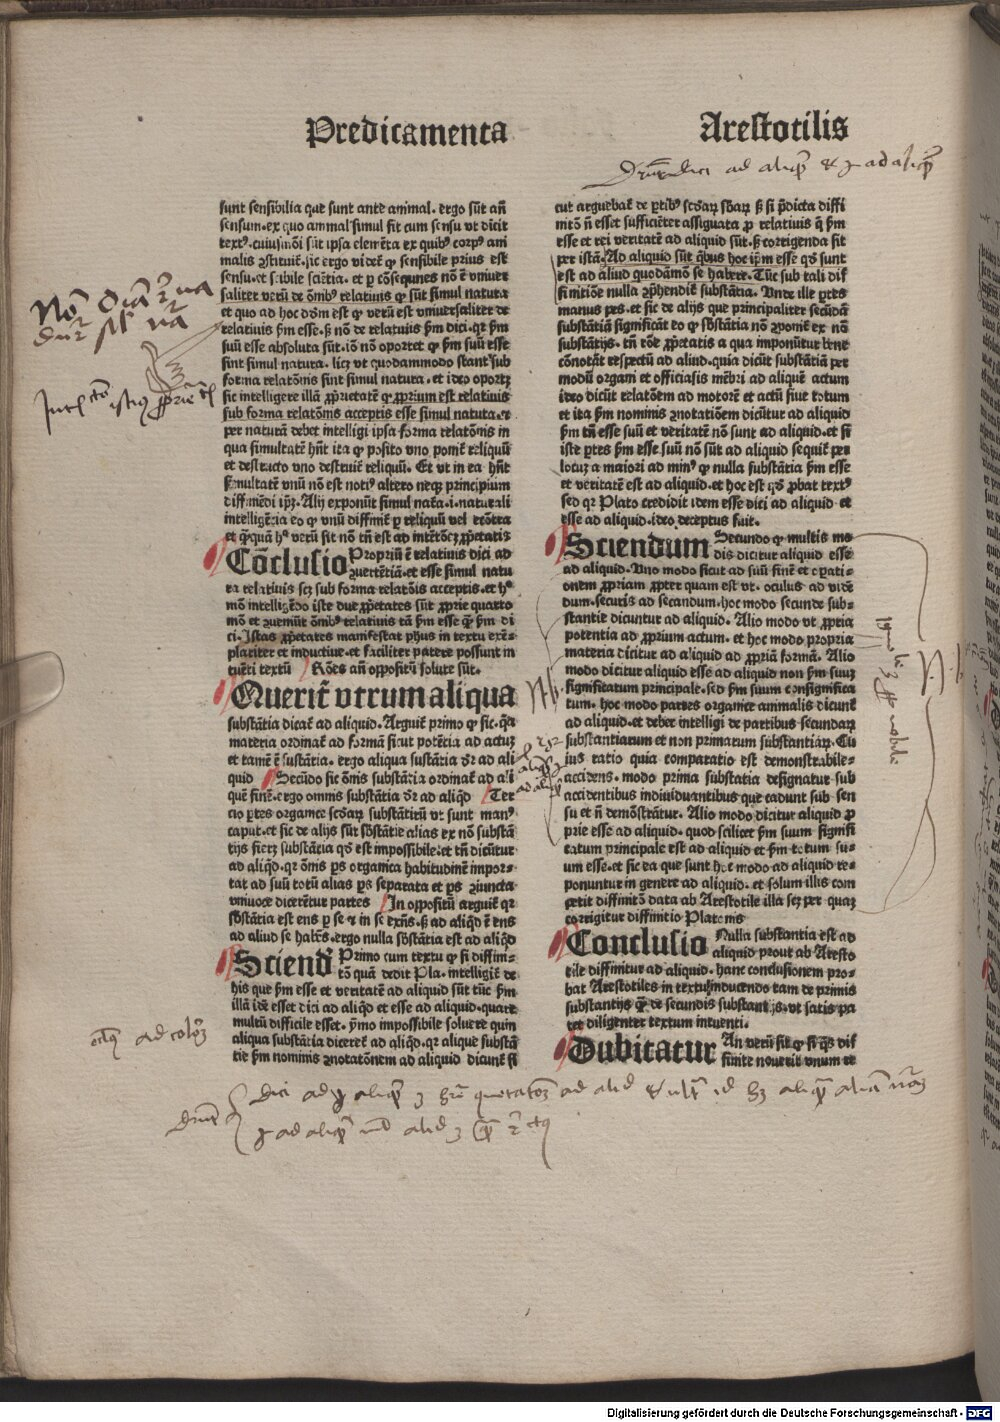 Predicamenta
Arestotilis
sunt sensibilia que sunt ante animal. ergo sūt añ
sensum. ex quo animal simul fit cum sensu vt dicit
text⁹. cuiusmōi sūt ipsa elemēta ex quib⁹ corp⁹ ani
malis ꝯstituit᷑. sic ergo videt᷑ ꝙ sensibile prius est
sensu. et scibile sciētia. et ꝑ cōsequens nō ē vniuer
saliter verū de oīb⁹ relatiuis ꝙ sūt simul natura
et quo ad hoc dōm est ꝙ verū est vniuersaliter de
relatiuis ẜm esse. ß nō de relatiuis ẜm dici. qꝛ ẜm
suū esse absoluta sūt. iō nō oportet ꝙ ẜm suū esse
sint simul natura. licꝫ vt quodammodo stant sub
forma relatōnis sint simul natura. et ideo oportꝫ
sic intelligere illā ꝓprietatē ꝙ ꝓprium est relatiuis
sub forma relatōnis acceptis esse simul natura. ⁊
per naturā debet intelligi ipsa forma relatōnis in
qua simultatē hñt ita ꝙ posito vno ponit᷑ reliquū
et destructo vno destruit᷑ reliquū. Et vt in ea hñt
simultatē vnū nō est noti⁹ altero neqꝫ principium
diffiniēdi ipm̄. Alij exponūt simul nat̄a. i. naturali
intelligētia eo ꝙ vnū diffinit᷑ ꝑ reliquū vel ecōtra
et ꝙquā h⁹ verū sit nō tñ est ad intētōeꝫ ꝓpetatis
Cōclusio Propriū ē relatiuis dici ad
ꝯuertētiā. et esse simul natu
ra relatiuis scꝫ sub forma relatōis acceptis. et h⁹
mō intelligēdo iste due ꝓpetates sūt ꝓprie quarto
mō et ꝯueniūt oīb⁹ relatiuis tā ẜm esse ꝙ̄ ẜm di
ci. Istas ꝓpetates manifestat phus in textu exē-
plariter et inductiue. et faciliter patere possunt in
tuēti textū Rōes añ oppositū solute sūt.
Querit᷑ vtrum aliqua
substātia dicat᷑ ad aliquid. Arguit᷑ primo ꝙ sic. qꝛ
materia ordinat᷑ ad formā sicut potētia ad actuꝫ
et tamē ē sustātia. ergo aliqua sustātia dꝛ ad ali
quid Secūdo sic oīs substātia ordinat᷑ ad ali
quē finē. ergo omnis substātia dꝛ ad aliqd Ter
cio ꝑtes organice scd̄aꝝ substātiaꝝ vt sunt man⁹
caput. et sic de alijs sūt sb̄stātie alias ex nō substā
tijs fieret substātia qd̄ est impossibile. et tñ dicūtur
ad aliqd. qꝛ oīs ps organica habitudinē impor-
tat ad suū totū alias ps separata et ps ꝯiuncta
vniuoce dicerētur partes In oppositū arguit᷑ qꝛ
sb̄stātia est ens ꝑ se ⁊ in se exñs. ß ad aliqd ē ens
ad aliud se habēs. ergo nulla sb̄stātia est ad aliqd
Sciend̄ Primo cum textu ꝙ si diffini-
tō quā dedit Pla. intelligit᷑ de
his que ẜm esse et veritatē ad aliquid sūt tūc ẜm
illā idē esset dici ad aliqd et esse ad aliquid. quare
multū difficile esset. ymo impossibile soluere quin
aliqua substātia diceret᷑ ad aliqd. qꝛ alique substā
tie ẜm nominis ꝯnotatōnem ad aliquid dicunt᷑ si
cut arguebat᷑ de ꝑtib⁹ scd̄aꝝ sb̄aꝝ ß si p̄dicta diffi
nitō ñ esset sufficiēter assignata ꝓ relatiuis q̄ ẜm
esse et rei veritatē ad aliquid sūt. ß corrigenda sit
per istā. Ad aliquid sūt qbus hoc ipm̄ esse qd̄ sunt
est ad aliud quodāmō se habere. Tūc sub tali dif
finitiōe nulla ꝯprehendit᷑ substātia. Vnde ille ꝑtes
manus pes. et sic de alijs que principaliter secūdā
substātiā significāt eo ꝙ sb̄stātia nō ꝯponit᷑ ex nō
substātijs. tñ rōe ꝓpetatis a qua imponūtur bene
cōnotāt respectū ad aliud. quia dicūt substātiā per
modū organi et officialis mēbri ad aliquē actum
ideo dicūt relatōem ad motorē et actū siue totum
et ita ẜm nominis ꝯnotatiōem dicūtur ad aliquid
ẜm tñ esse suū et veritatē nō sunt ad aliquid. et si
iste ꝑtes ẜm esse suū nō sūt ad aliquid sequit᷑ per
locuꝫ a maiori ad min⁹ ꝙ nulla substātia ẜm esse
et veritatē est ad aliquid. et hoc est qd̄ ꝓbat text⁹
sed qꝛ Plato credidit idem esse dici ad aliquid et
esse ad aliquid. ideo deceptus fuit.
Sciendum Secundo ꝙ multis mo
dis dicitur aliquid esse
ad aliquid. Uno modo sicut ad suū finē et oꝑati-
onem ꝓpriam ꝓpter quam est vt. oculus ad vidē
dum. securis ad secandum. hoc modo secunde sub-
stantie dicuntur ad aliquid. Alio modo vt ꝓpria
potentia ad ꝓprium actum. et hoc modo propria
materia dicitur ad aliquid ad ꝓpriā formā. Alio
modo dicitur aliquid esse ad aliquid non ẜm suuꝫ
significatum principale. sed ẜm suum consignifica
tum. hoc modo partes organice animalis dicunt᷑
ad aliquid. et debet intelligi de partibus secundaꝝ
substantiarum et non primarum substantiaꝝ. Cu
ius ratio quia comparatio est demonstrabile-
accidens. modo prima substātia designatur sub
accidentibus indiuiduantibus que cadunt sub sen
su et ñ demōstrātur. Alio modo dicitur aliquid ꝓ
prie esse ad aliquid. quod scilicet ẜm suum signifi
catum principale est ad aliquid et ẜm totum su-
um esse. et sic ea que sunt hoc modo ad aliquid re-
ponuntur in genere ad aliquid. et solum illis com
petit diffinitō data ab Arestotile illa scꝫ per quaꝫ
corrigitur diffinitio Platonis
Conclusio Nulla substantia est ad
aliquid prout ab Aresto
tile diffinitur ad aliquid. hanc conclusionem pro-
bat Arestotiles in textu inducendo tam de primis
substantijs ꝙ̄ de secundis substantijs. vt satis pa
tet diligenter textum intuenti.
Dubitatur An verū sit ꝙ si qs dif
finite nouerit vnum re